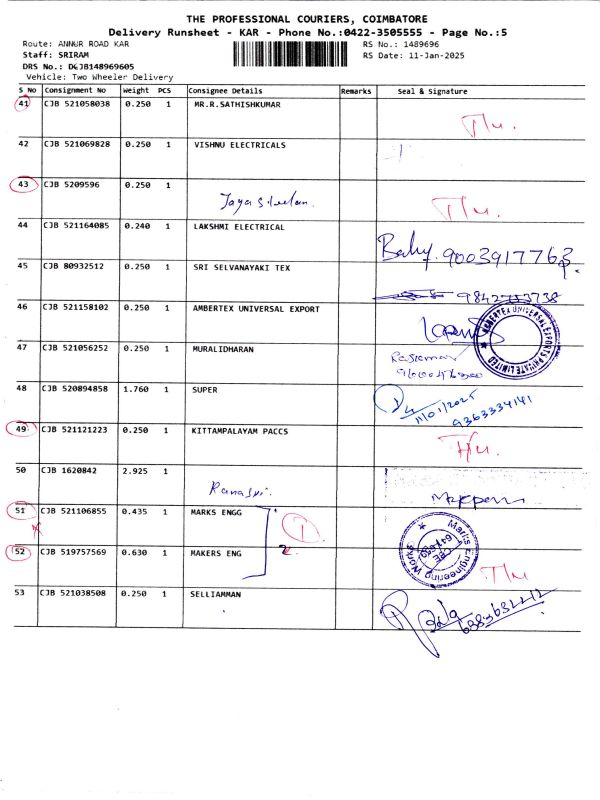 THE PROFESSIONAL COURIERS, COIMBATORE
Delivery Runsheet - KAR - Phone No.:0422-3505555 - Page No.:5
Route: ANNUR ROAD KAR RS No.: 1489696
Staff: SRIRAM RS Date: 11-Jan-2025
DRS No.: D6JB148969605
Vehicle: Two Wheeler Delivery
S No Consignment No Weight PCS Consignee Details Remarks Seal & Signature
41 CJB 521058038 0.250 1 MR.R.SATHISHKUMAR
42 CJB 521069828 0.250 1 VISHNU ELECTRICALS
43 CJB 5209596 0.250 1
44 CJB 521164085 0.240 1 LAKSHMI ELECTRICAL
Baby. 9003917763
45 CJB 80932512 0.250 1 SRI SELVANAYAKI TEX
46 CJB 521158102 0.250 1 AMBERTEX UNIVERSAL EXPORT
AMBERTEX UNIVERSAL EXPORTS PRIVATE LIMITED
47 CJB 521056252 0.250 1 MURALIDHARAN
48 CJB 520894858 1.760 1 SUPER
11/01/2025
9363334141
49 CJB 521121223 0.250 1 KITTAMPALAYAM PACCS
50 CJB 1620842 2.925 1
51 CJB 521106855 0.435 1 MARKS ENGG
1
Marks Engineering Works
52 CJB 519757569 0.630 1 MAKERS ENG
2
53 CJB 521038508 0.250 1 SELLIAMMAN